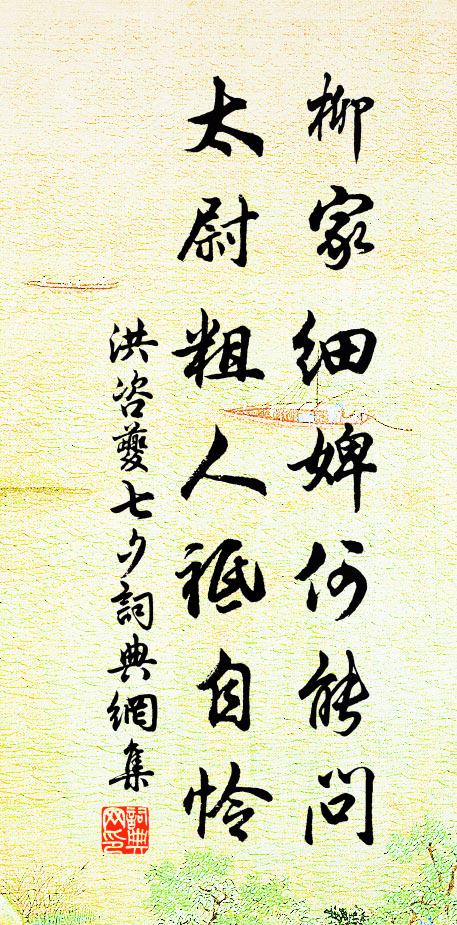 柳家细婢何能问
太尉粗人祗自怜
洪咨夔七夕詞典網集
詞典网印